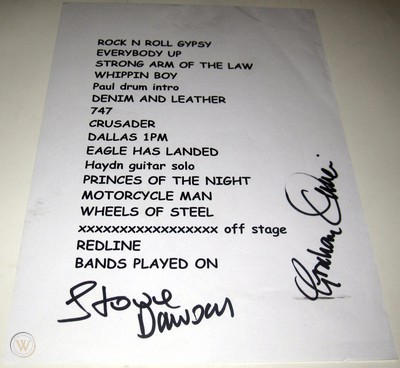 ROCK N ROLL GYPSY
EVERYBODY UP
STRONG ARM OF THE LAW
WHIPPIN BOY
Paul drum intro
DENIM AND LEATHER
747
CRUSADER
DALLAS 1PM
EAGLE HAS LANDED
Haydn guitar solo
PRINCES OF THE NIGHT
MOTORCYCLE MAN
WHEELS OF STEEL
xxxxxxxxxxxxxxxxx off stage
REDLINE
BANDS PLAYED ON
Steve
Dawson
Graham Oliver
W